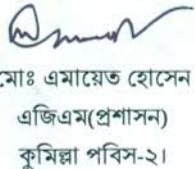 মোঃ এমায়েত হোসেন
এজিএম(প্রশাসন)
কুমিল্লা পবিস-২।